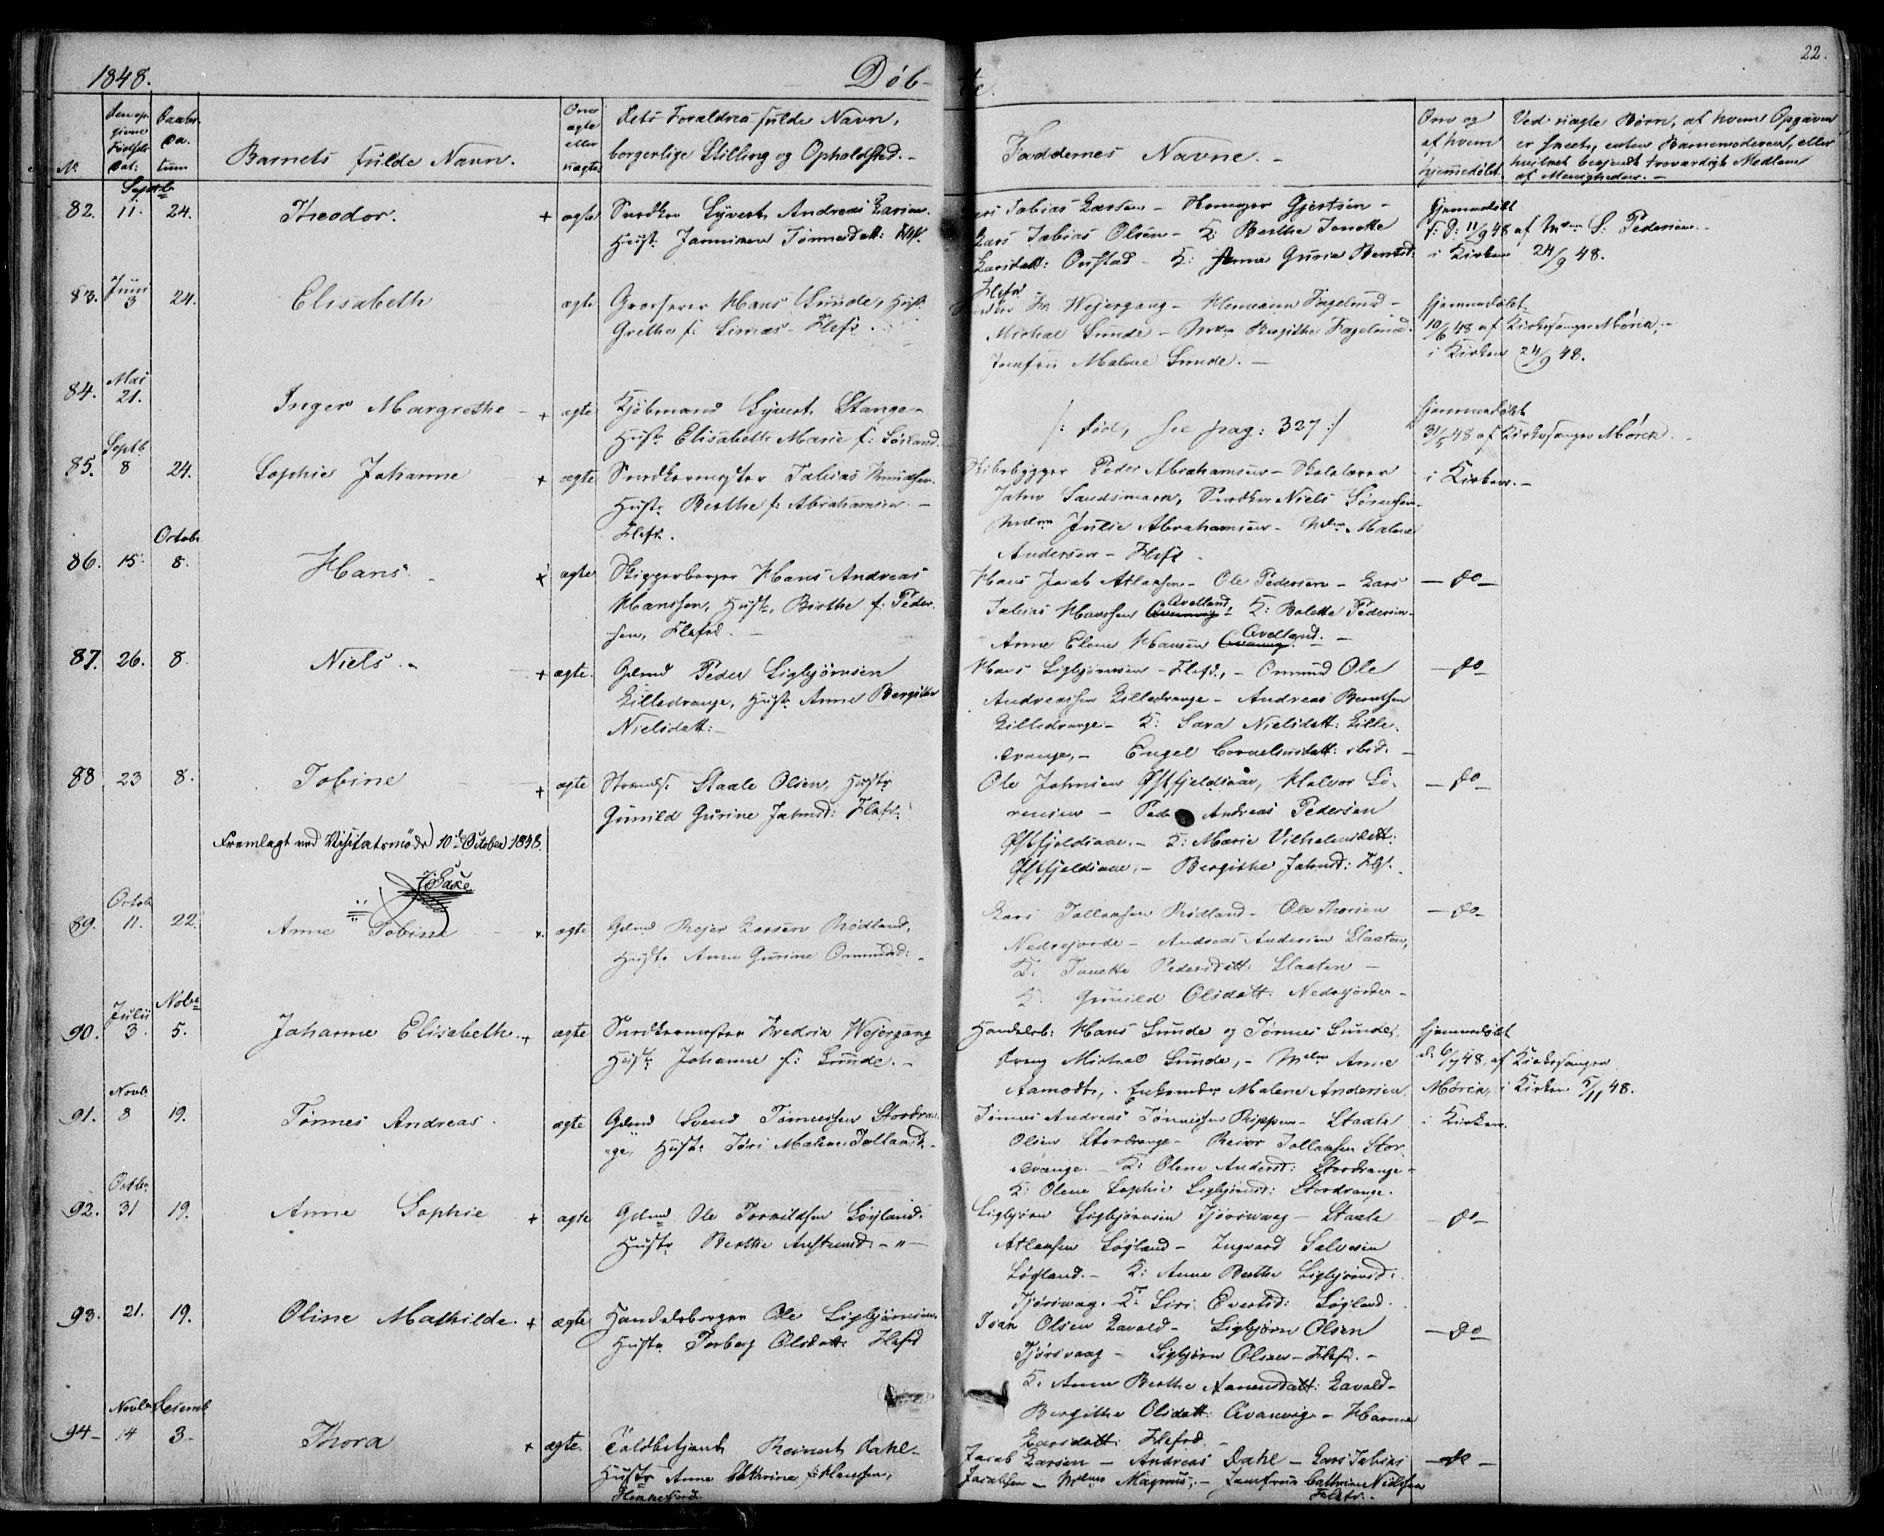 1848.
Døb-
te.
22.
No
Den op-
givne
Fødsels
Dat:
Daabs-
Da-
tum
Barnets fulde Navn.
Om
ægte
eller
uægte
Dets Forældres fulde Navn,
borgerlige Stilling og Opholdssted. -
Faddernes Navne. -
Om og
af hvem
hjemmedøbt.
Ved uægte Børn, af hvem Opgaven
er skeet, enten Barnemoderen, eller
hvilket besyndt troværdigt Medlem
af Menigheden. -
Septb
82. 11. 24. Theodor. + ægte Snedker Syvert Andreas Larsen.
Hust: Jannikem Tønnesdatt:
Tobias Larsen - Gjertsen -
Lars Tobias Olsen - K: Berthe Tonette
Larsdatt: - K: Anne Gurine Berntsd:
hjemmedøbt
f: D: 11/9 48 af Mdm S: Pedersen -
i Kirken 24/9 48.
Juni
83. 3 24. Elisabeth ægte Grosserer Hans Sunde, Hust:
Grethe f: - Flekf.
Fr: Wejergang - Hermann Fogelund -
Michal Sunde - Mdm Bergithe Fogelund.
Jomfru Malene Sunde. -
hjemmedøbt
10/6 48 af Kirkesanger Mørch, -
i Kirken 24/9 48.
Mai
84. 21. Inger Margrethe - + ægte Kjøbmand Syvert Stange -
Hust: Elisabeth Marie f: Sørland.
/: død, see pag: 327 :/
hjemmedøbt
31/5 48 af Kirkesanger Mørch. -
Septb
85. 8 24. Sophie Johanne + ægte Snedkermester Tobias Knudsen.
Hust: Berthe f: Abrahamsen. -
Flekf.
Skibsbygger Peder Abrahamsen - Skolelærer
Sandsmark, Snedker Niels Sørensen -
Mdm Julie Abrahamsen - Mdm Malene
Andersen - Flekf.
i Kirken. -
Octob
86. 15. 8. Hans - + ægte Hans Andreas
Hanssen, Hust: Birthe f: Peder-
sen, Flekfd. -
Hans Jacob Atlaksen - Ole Pedersen - Lars
Tobias Hanssen Avelland - K: Bolette Pedersen -
Anne Elene Hansen Avelland. -
- do -
87. 26. 8. Niels. - + ægte. Gdmd Peder Sigbjørnsen
Lilledrange, Hust: Anne Bergithe
Nielsdatt: -
Hans Sigbjørnsen - Flekfd., - Omund Ole
Andreassen Lilledrange - Andreas Berntsen
Lilledrange - K: Sara Nielsdatt: Lille-
drange, - Engel Corneliusdatt: ibid: -
- do
88 23 8. Tobine + ægte Strands: Staale Olsen, Hust:
Gunild Gurine Jahnsd: Flekf:
Ole Jahnsen Østfjeldsaae, Halvor Sø-
rensen - Peder Andreas Pedersen
Østfjeldsaae. - K: Marie Vilhelmsdatt:
Østfjeldsaae. - Bergithe Jahnsd: Flf.
- do -
Fremlagt ved Visitatsmøde 10de October 1848.
Octob
89. 11. 22. Anne Tobine ægte Gdmd Rejer Larsen Rødland,
Hust: Anne Gurine Omundsd: -
Lars Tollaksen Rødland - Ole Thorsen
Nedrejorde - Andreas Andersen Slaaten,
K: Tonette Pedersdatt: Slaaten -
K: Gunild Olsdatt: Nedrejorder -
- do -
Julii Novbr
90. 3. 5. Johanne Elisabeth. + ægte Snedkermester Fredrik Wejergang
Hust: Johanne f: Sunde. -
Handelsb: Hans Sunde og Tønnes Sunde,
Dreng Michal Sunde, - Mdm Anne
Aamodt, - Malene Andersen
hjemmedøbt
d. 6/7 48. af Kirkesanger
Mørch, i Kirken 5/11 48.
Novb.
91. 8 19. Tønnes Andreas. ægte Gdmd Svend Tønnessen Stordran-
ge, Hust: Tøri Malene Tollaksd. -
Tønnes Andreas Tønnessen - Staale
Olsen Stordrange - Reier Tollaksen Stor-
drange. - K: Olene Andersd: Stordrange -
K: Olene Sophie Sigbjørnsd: Stordrange.
i Kirken.
Octbr.
92. 31 19. Anne Sophie + ægte Gdmd Ole Torkildsen Løgland.
Hust: Berthe - " -
Sigbjørn Sigbjørnsen Tjørsvaag - Staale
Atlaksen Løgland - Ingvard Salvesen
Løgland. - K: Anne Berthe Sigbjørnsd:
Tjørsvaag. K: Siri Evertsd: Løgland.
- do -
93. 21. 19. Oline Mathilde. + ægte Handelsborger Ole Sigbjørnsen.
Hust: Torborg Olsdatt: Flekfd
Isak Olsen Lavold - Sigbjørn Olsen
Tjørsvaag - Sigbjørn Olsen - Flekf. -
K: Anne Berthe Aanensdatt: Lavold -
Bergithe Olsdatt: - Hanne
Larsdatt: Flekfd. -
- Do -
Novbr Decemb
94 - 14 3 - Thora + ægte. Toldbetjent Reinert Dahl -
Hust: Anne Cathrine f: Hansen,
Jacob Larsen - Andreas Dahl - Lars Tobias
Jacobsen - Mdm Magnus, - Jomfrue Cathrine Nielsen
Flekf. -
- do -